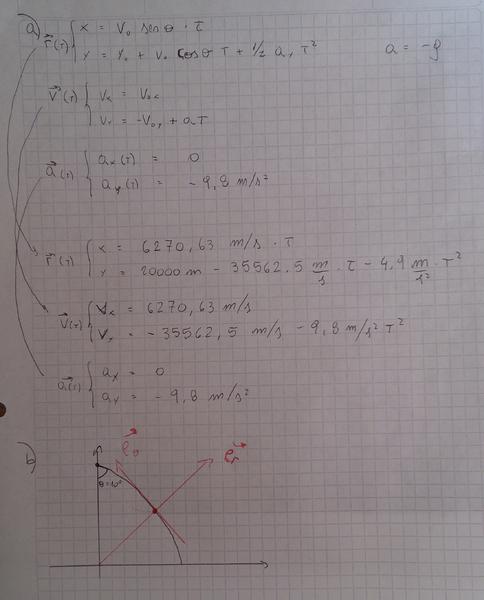 a)
r(t) { x = V₀ senθ · t
y = y₀ + V₀ cosθ t + 1/2 a, t² a = -g
V(t) { Vx = V₀x
Vy = -V₀y + at
a(t) { ax(t) = 0
ay(t) = -9,8 m/s²
r(t) { x = 6270,63 m/s · t
y = 20000 m - 35562.5 m/s · t - 4,9 m/s² · t²
V(t) { Vx = 6270,63 m/s
Vy = -35562,5 m/s - 9,8 m/s² t²
a(t) { ax = 0
ay = -9,8 m/s²
b)
θ=10°